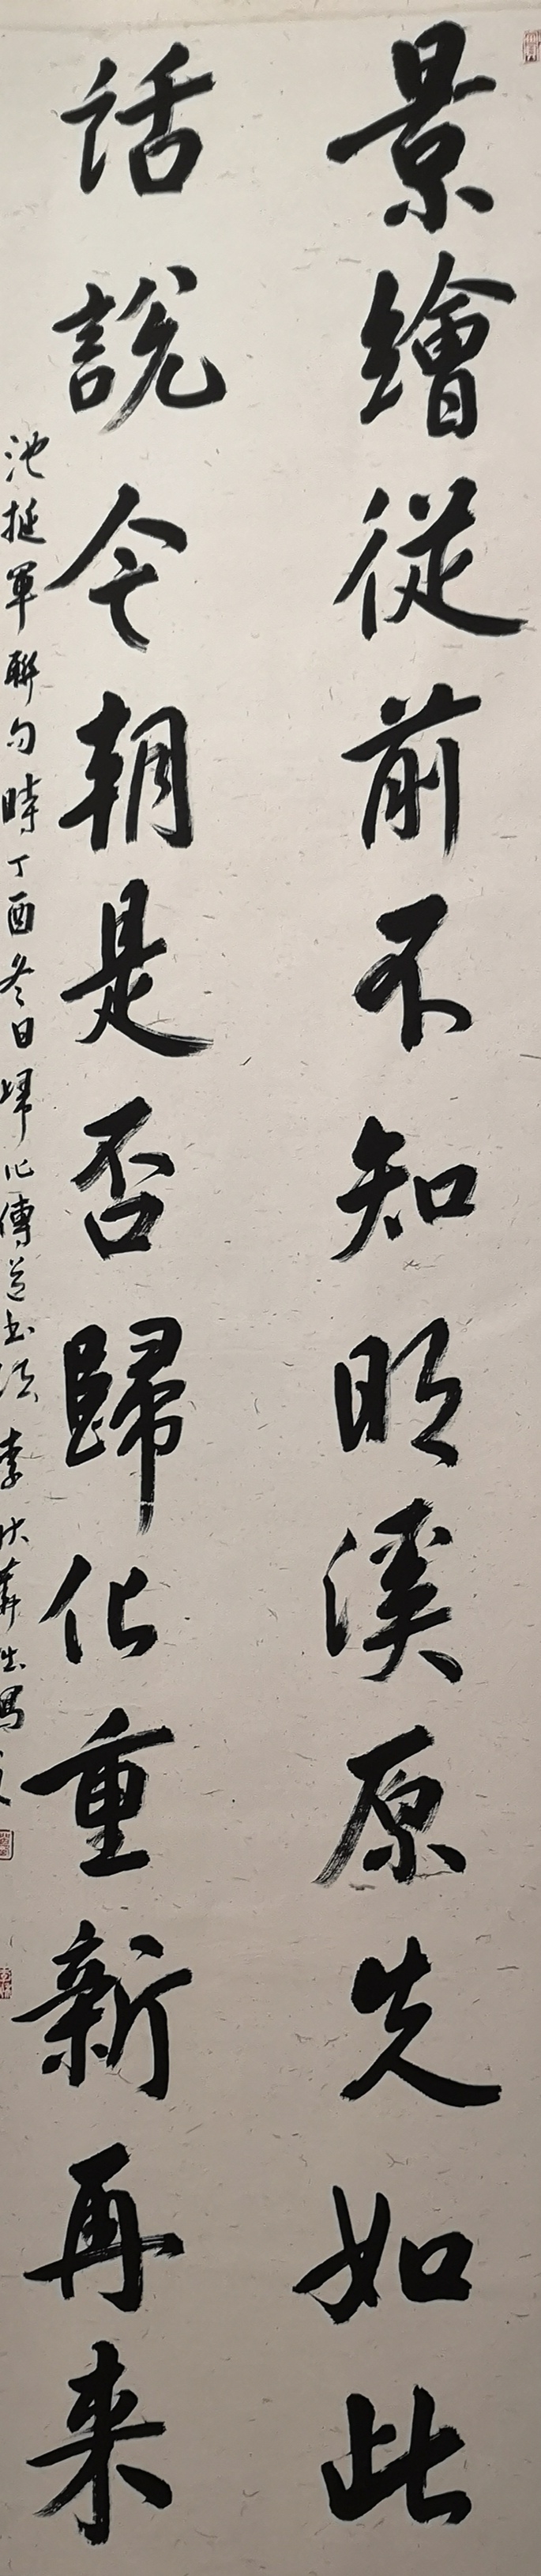 景繪從前不知明溪原先如此
話說今朝是否歸化重新再来
池挺軍聯句時丁酉冬日歸化傳道書法李